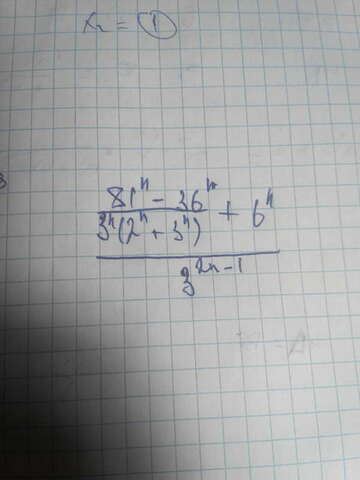 x₂ = 1
81ⁿ - 36ⁿ
3ⁿ(2ⁿ + 3ⁿ) + 6ⁿ
3²ⁿ⁻¹